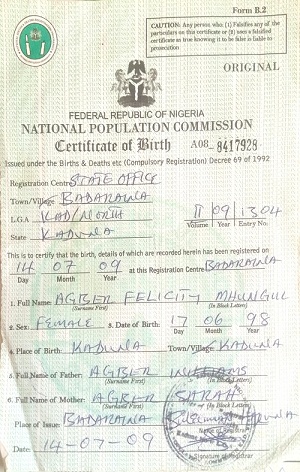 Form B.2
CAUTION: Any person who (1) Falsifies any of the
particulars on this certificate or (2) uses a falsified
certificate as true knowing it to be false is liable to
prosecution
ORIGINAL
FEDERAL REPUBLIC OF NIGERIA
NATIONAL POPULATION COMMISSION
Certificate of Birth A08 8417928
Issued under the Births & Deaths etc (Compulsory Registration) Decree 69 of 1992
Registration Centre STATE OFFICE
Town/Village BADARAWA
L.G.A KAD/NORTH II 09 1304
State KADUNA Volume Year Entry No.
This is to certify that the birth, details of which are recorded herein has been registered on
14 07 09 at this Registration Centre BADARAWA
Day Month Year
1. Full Name: AGBER FELICITY MHUNGUL
(Surname First) (In Block Letters)
2. Sex: FEMALE 3. Date of Birth: 17 06 98
Day Month Year
4. Place of Birth: KADUNA Town/Village KADUNA
5. Full Name of Father: AGBER WILLIAMS
(Surname First) (In Block Letters)
6. Full Name of Mother: AGBER SARAH
(Surname First) (In Block Letters)
Place of Issue: BADARAWA
Date: 14-07-09
Signature of Registrar